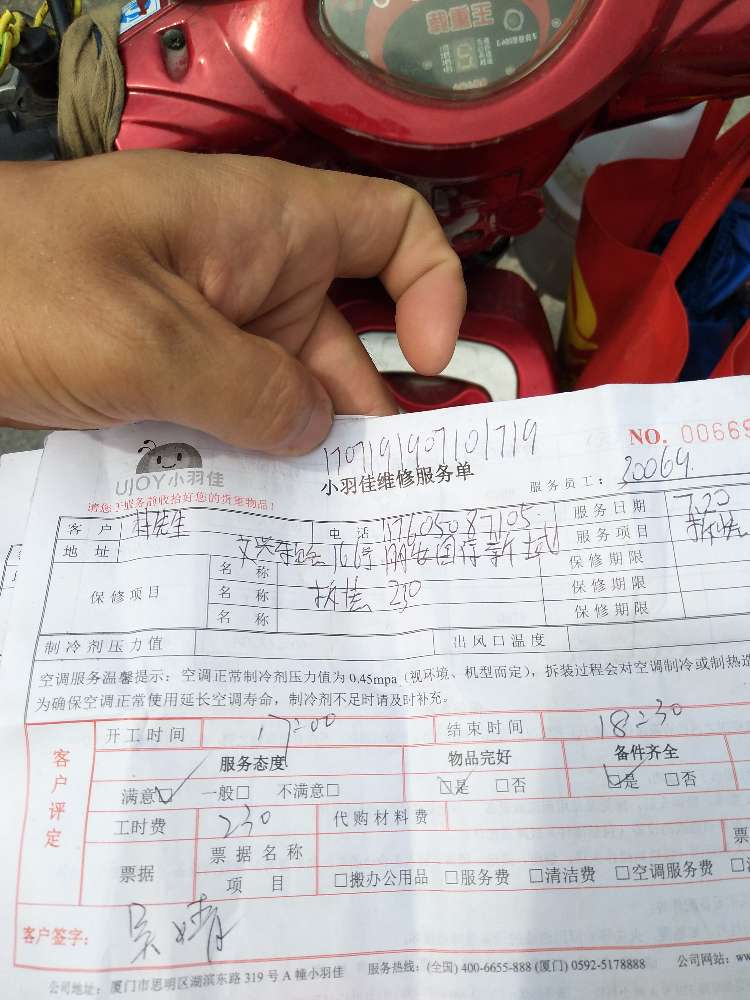 载重王
1707191907101719
NO. 00669
UJOY小羽佳
小羽佳维修服务单
服务员工: 30064
请您于服务前收拾好您的贵重物品!
客户 林先生 电话 17605087105 服务日期 7.20
地址 服务项目 拆挂
名称 保修期限
保修项目 名称 拆挂 230 保修期限
名称 保修期限
制冷剂压力值 出风口温度
空调服务温馨提示:空调正常制冷剂压力值为0.45mpa(视环境、机型而定),拆装过程会对空调制冷或制热造
为确保空调正常使用延长空调寿命,制冷剂不足时请及时补充。
开工时间 17:00 结束时间 18:30
客户评定
服务态度 物品完好 备件齐全
满意☑ 一般□ 不满意□ ☑是 □否 ☑是 □否
工时费 230 代购材料费
票据 票据名称 票
项目 □搬办公用品 □服务费 □清洁费 □空调服务费
客户签字: 吴靖
公司地址:厦门市思明区湖滨东路319号A幢小羽佳 服务热线:(全国) 400-6655-888 (厦门) 0592-5178888 公司网站:ww